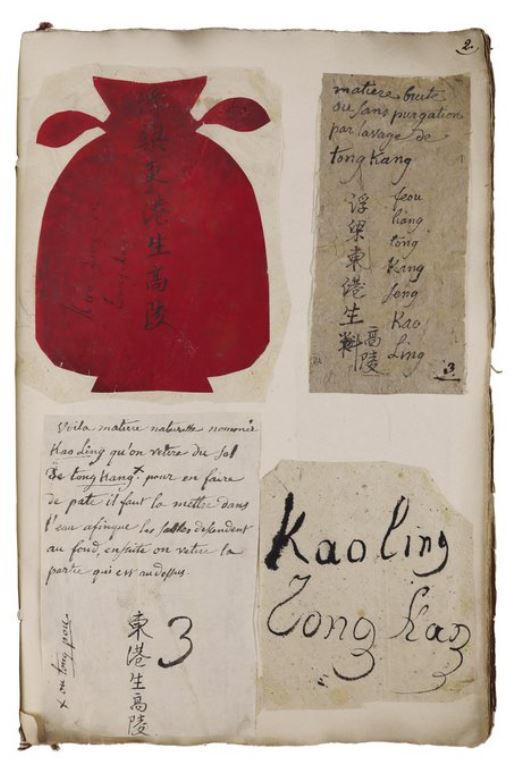 2.
浮梁東港生高陵
matière brute
ou sans purgation
par lavage de
tong Kang
feou
liang
tong
Kang
seng
Kao
Ling
浮梁東港生料
高陵
3.
Voila matiere naturelle nommée
Kao Ling qu'on retire du sol
de tong Kang + pour en faire
de pate il faut la mettre dans
l'eau afinque les sables descendent
au fond, ensuite on retire la
partie qui est au dessus.
+ ou tong pou
東港生高陵
3
Kaoling
Tong Kang